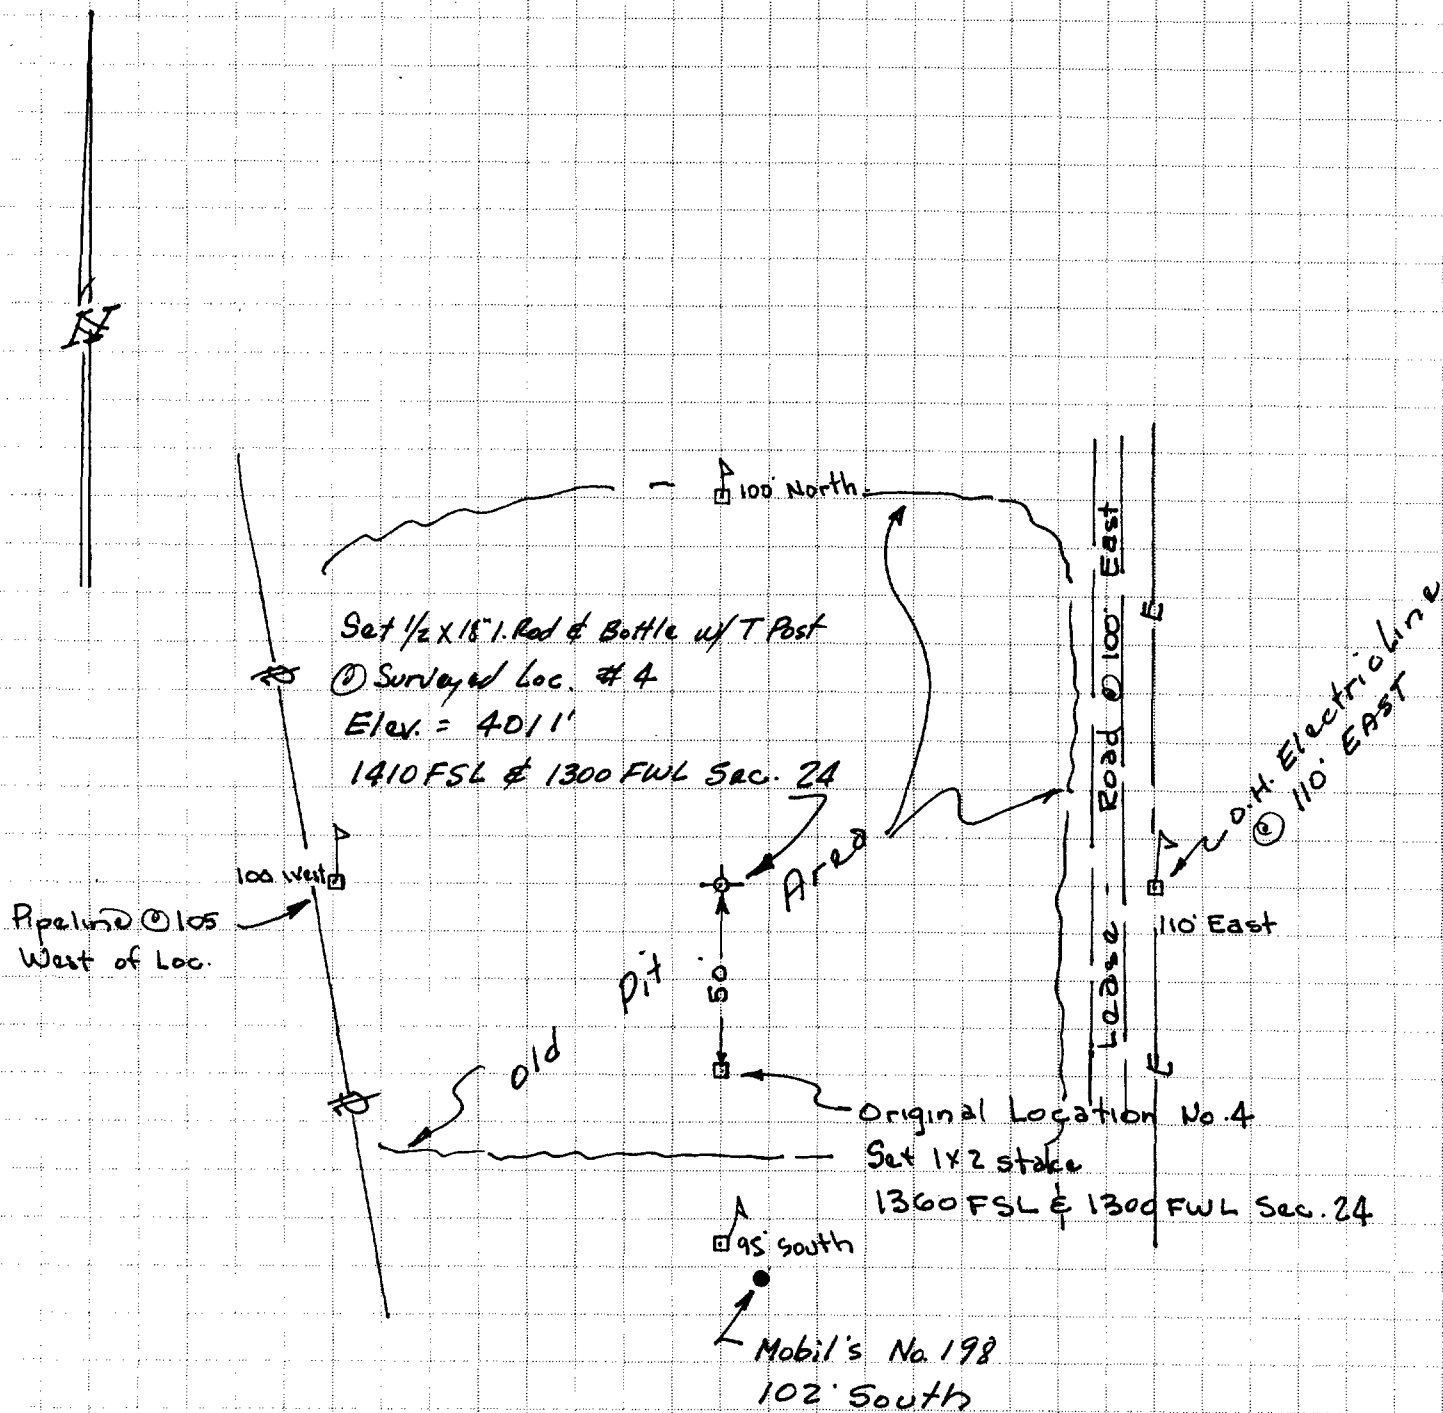 N
100' North
Set 1/2 X 18" I. Rod & Bottle w/ T Post
@ Surveyed Loc. # 4
Elev. = 4011'
1410 FSL & 1300 FWL Sec. 24
Lease Road @ 100' East
E
O.H. Electric Line
@ 110' EAST
100 West
Pipeline @ 105
West of Loc.
110' East
Old Pit Area
50'
E
Original Location No. 4
Set 1X2 stake
1360 FSL & 1300 FWL Sec. 24
95' South
Mobil's No. 198
102' South